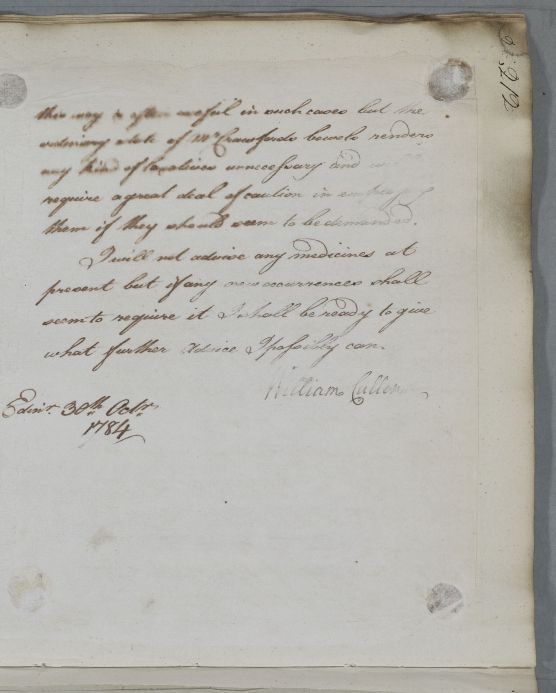 this way is often useful in such cases but the
ordinary state of Mr Crawfords bowels renders
any kind of laxatives unnecessary and
require a great deal of caution in employing
them if they should seem to be demanded.
I will not advise any medicines at
present but if any new occurrences shall
seem to require it I shall be ready to give
what further advice I possibly can.
William Cullen
Edinr. 30th Octr.
1784